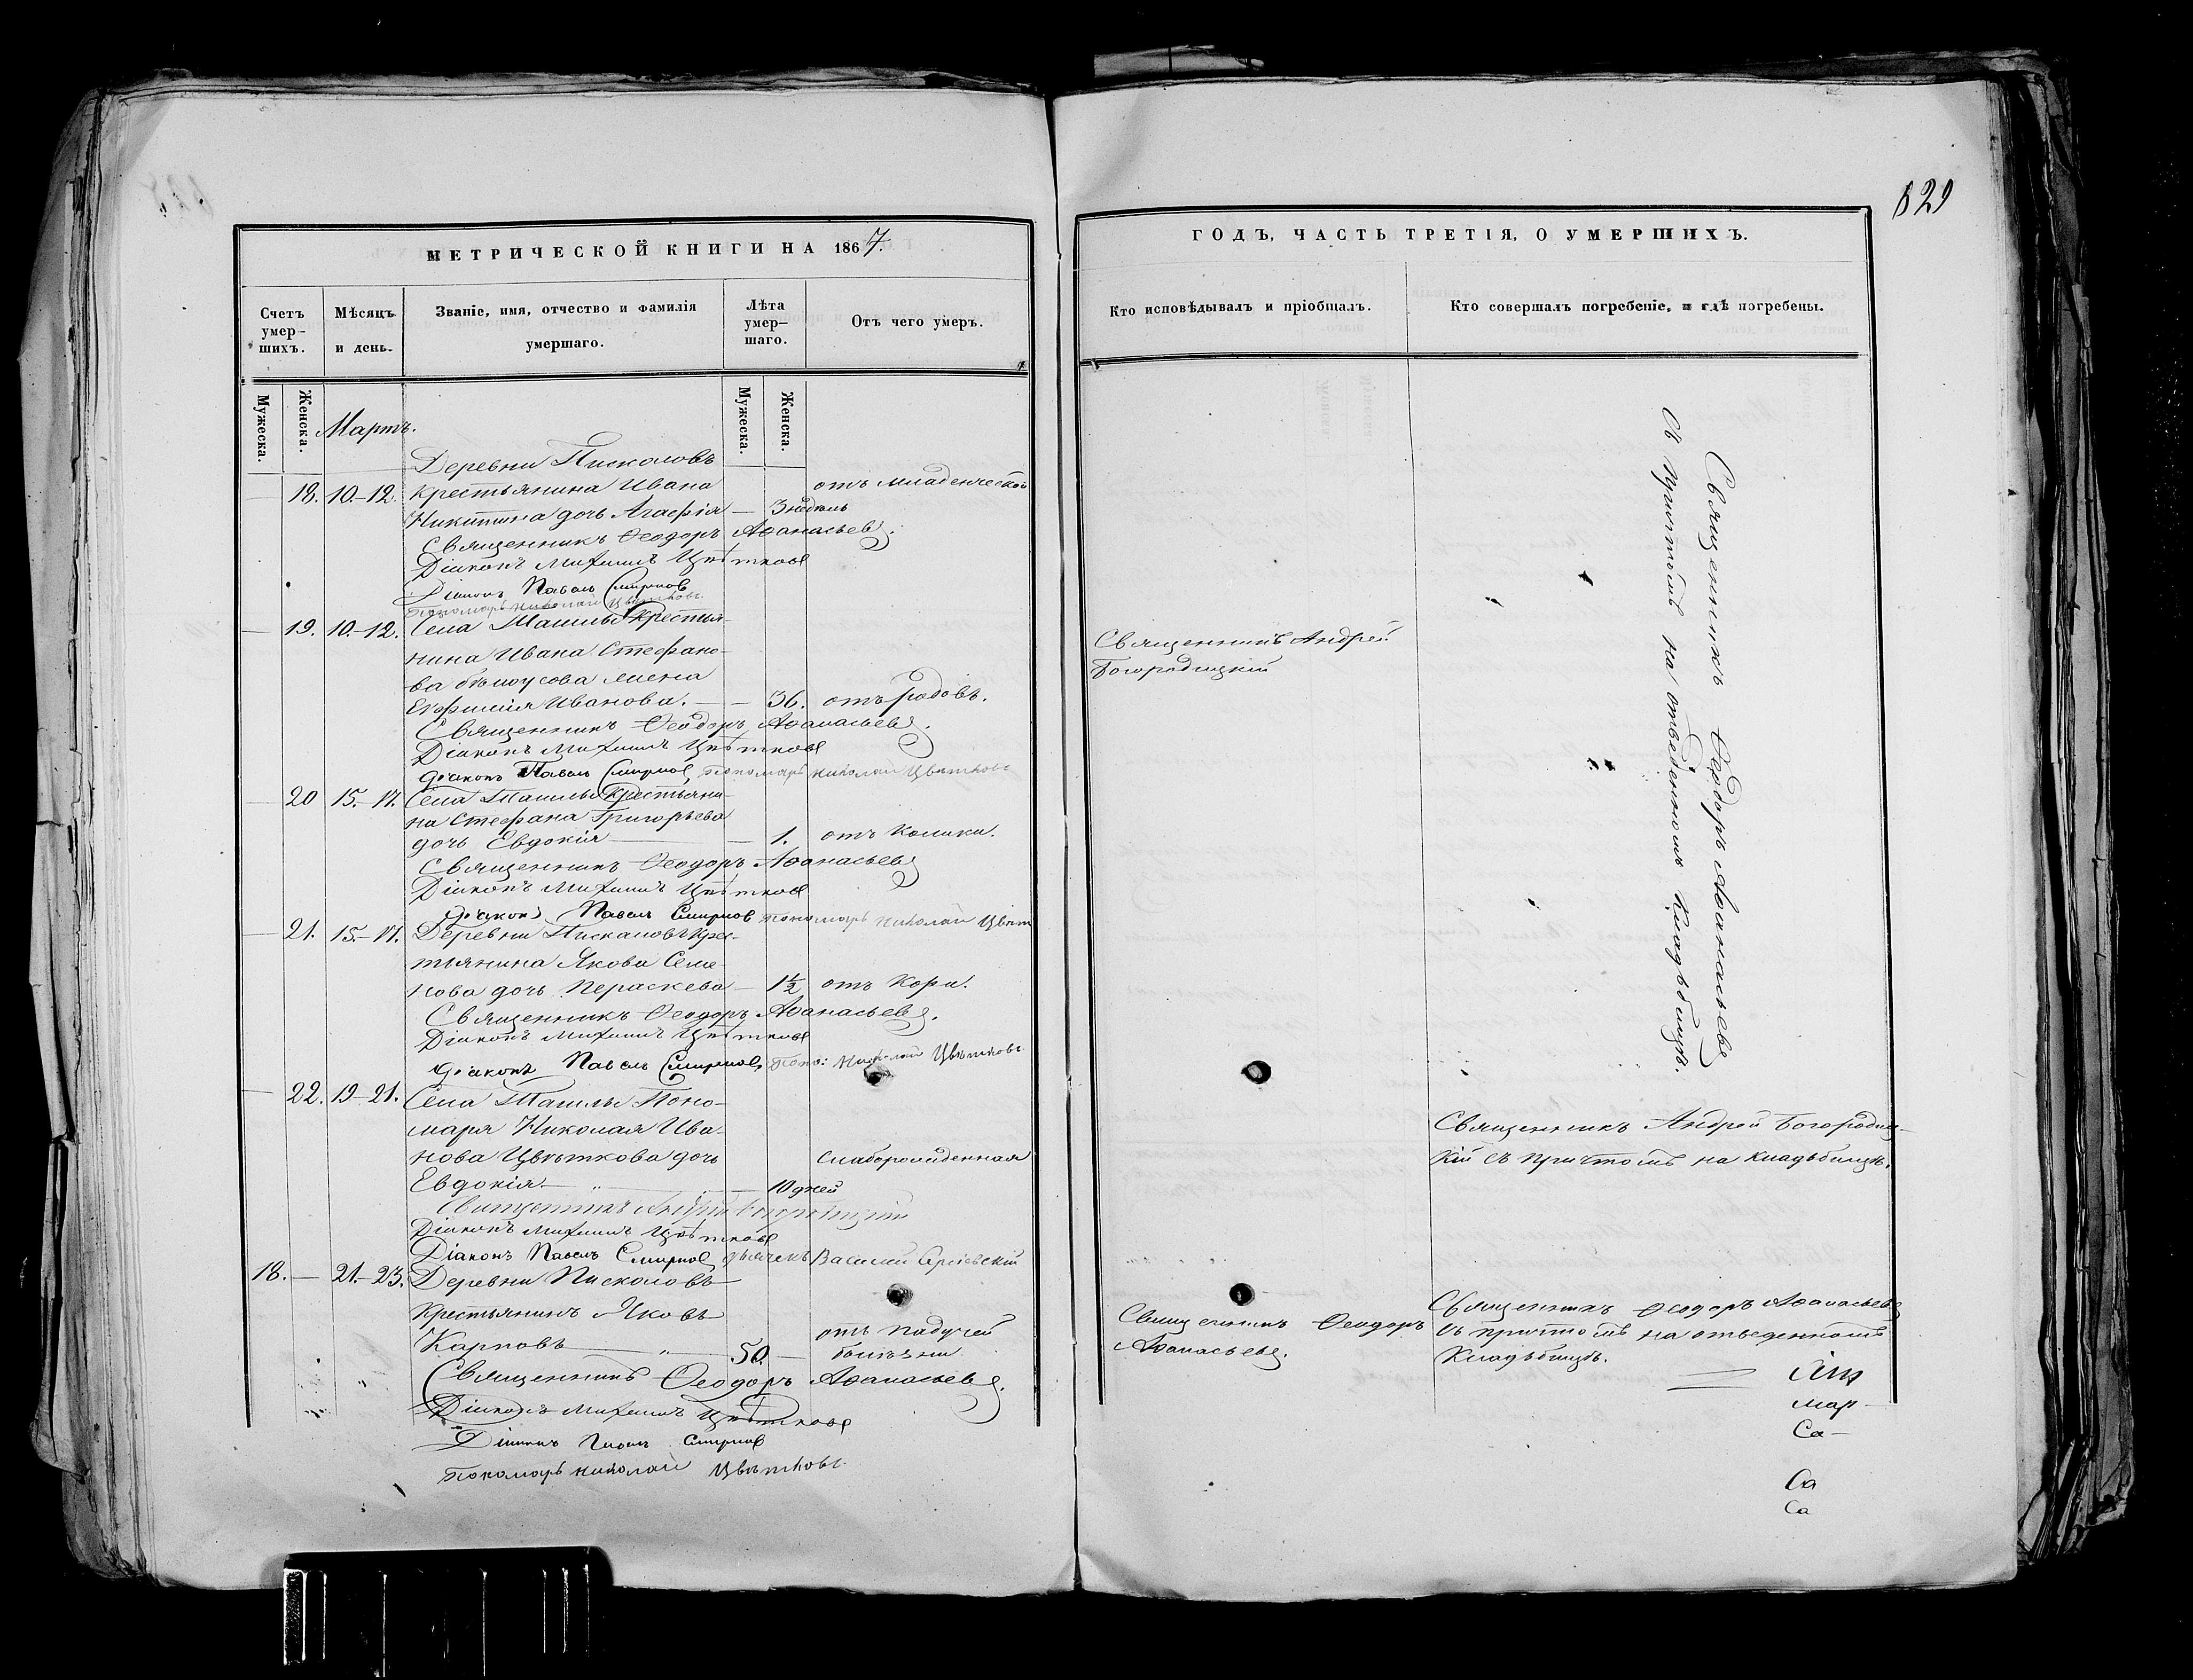 829
МЕТРИЧЕСКОЙ КНИГИ НА 1867.
Счетъ умер-шихъ.
Мѣсяцъ и день.
Званіе, имя, отчество и фамилія умершаго.
Лѣта умер-шаго.
Отъ чего умеръ.
Мужеска.
Женска.
Мужеска.
Женска.
Мартъ.
Деревни Пискаловъ
18. 10.-12. Крестьянина Ивана отъ младенческой
Никитина дочь Агафія — 3 недѣль
Священникъ Ѳеодоръ Аѳанасьевъ.
Діаконъ Михаилъ Цвѣтковъ
Діаконъ Павелъ Смирновъ
Пономарь Николай Цвѣтковъ.
19. 10.-12. Села Крестья-
нина Ивана Стефано-
ва Бѣлоусова жена
Евфимія Иванова. — 36. отъ родовъ.
Священникъ Ѳеодоръ Аѳанасьевъ.
Діаконъ Михаилъ Цвѣтковъ
Діаконъ Павелъ Смирновъ, Пономарь Николай Цвѣтковъ
20 15.-17. Села Крестьяни-
на Стефана Григорьева
дочь Евдокія — 1. отъ Колики.
Священникъ Ѳеодоръ Аѳанасьевъ
Діаконъ Михаилъ Цвѣтковъ
Діаконъ Павелъ Смирновъ Пономарь Николай Цвѣт
21. 15.-17. Деревни Пискаловъ Крес-
тьянина Якова Семе-
нова дочь Параскева — 1½ отъ Кори.
Священникъ Ѳеодоръ Аѳанасьевъ.
Діаконъ Михаилъ Цвѣтковъ
Діаконъ Павелъ Смирновъ, Поно: Николай Цвѣтковъ
22. 19-21. Села Поно-
маря Николая Ива-
нова Цвѣткова дочь Слаборожденная
Евдокія — „ — 10 дней
Священникъ Андрей Богородицкій
Діаконъ Михаилъ Цвѣтковъ
Діаконъ Павелъ Смирновъ Дьячекъ Василій Сергіевскій
18. — 21.-23. Деревни Пискаловъ
Крестьянинъ Яковъ
Карповъ — „ — 50. — отъ падучей болѣзни
Священникъ Ѳеодоръ Аѳанасьевъ.
Діаконъ Михаилъ Цвѣтковъ
Діаконъ Павелъ Смирновъ
Пономарь Николай Цвѣтковъ.
ГОДЪ, ЧАСТЬ ТРЕТІЯ, О УМЕРШИХЪ.
Кто исповѣдывалъ и пріобщалъ.
Кто совершалъ погребеніе, и гдѣ погребены.
Священникъ Андрей
Богородицкій
Священникъ Ѳеодоръ Аѳанасьевъ
съ Причтомъ на отведенномъ Кладбищѣ.
Священникъ Андрей Богородиц-
кій съ причтомъ на кладьбищѣ.
Священникъ Ѳеодоръ
Аѳанасьевъ.
Священникъ Ѳеодоръ Аѳанасьевъ
съ причтомъ на отведенномъ
Кладьбищѣ.
мар-
Са-
Са
Са